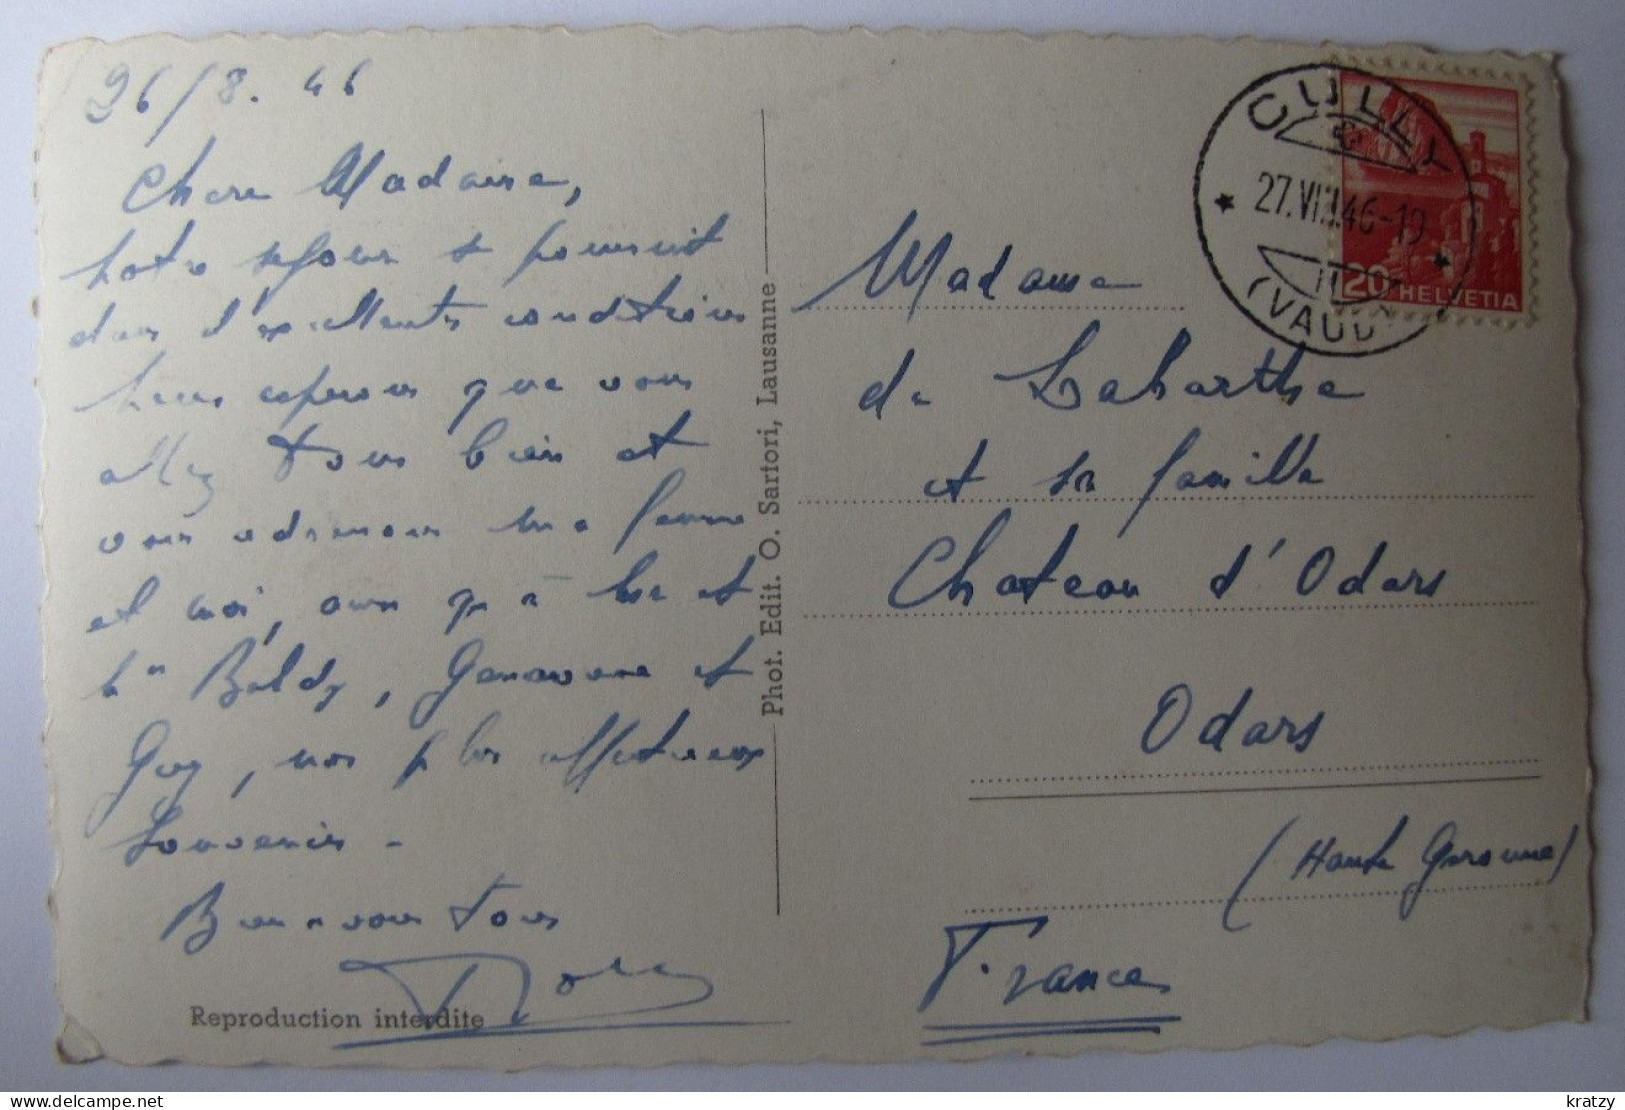 26/8.46
Chere Madame,
notre séjour se poursuit
dans d'excellentes conditions
nous esperons que vous
allez tous bien et
vous adressons ma femme
et moi, ainsi qu'à Mr et
Mme Boldy, Genevieve et
Guy, nos plus affectueux
Souvenirs -
Bien a vous tous
Reproduction interdite
Phot. Edit. O. Sartori, Lausanne
CULLY
27.VIII.46-19
(VAUD)
20 HELVETIA
Madame
de Labarthe
et sa famille
Chateau d'Odars
Odars
(Haute Garonne)
France
kratzy